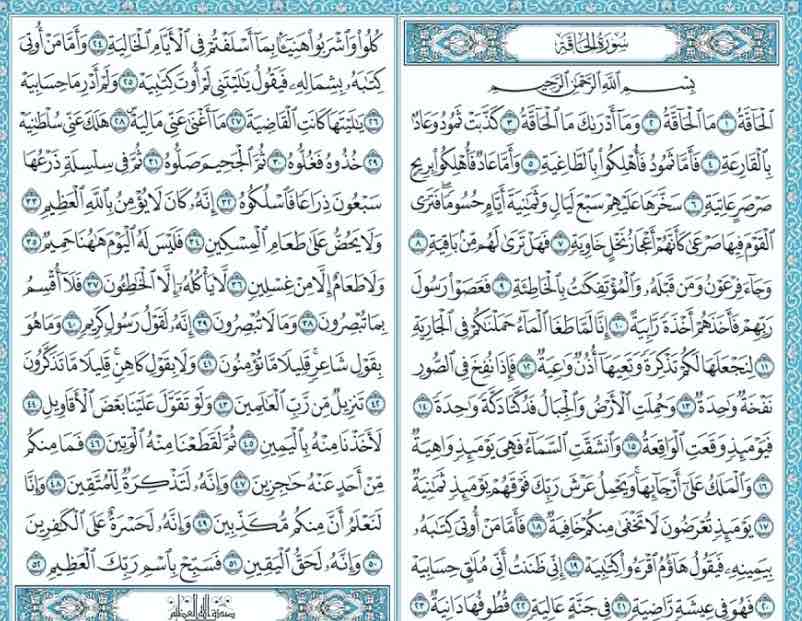 سُورَةُ الحَاقَّةِ
بِسْمِ ٱللَّهِ ٱلرَّحْمَٰنِ ٱلرَّحِيمِ
ٱلْحَآقَّةُ ١ مَا ٱلْحَآقَّةُ ٢ وَمَآ أَدْرَىٰكَ مَا ٱلْحَآقَّةُ ٣ كَذَّبَتْ ثَمُودُ وَعَادٌۢ
بِٱلْقَارِعَةِ ٤ فَأَمَّا ثَمُودُ فَأُهْلِكُوا۟ بِٱلطَّاغِيَةِ ٥ وَأَمَّا عَادٌ فَأُهْلِكُوا۟ بِرِيحٍ
صَرْصَرٍ عَاتِيَةٍ ٦ سَخَّرَهَا عَلَيْهِمْ سَبْعَ لَيَالٍ وَثَمَٰنِيَةَ أَيَّامٍ حُسُومًا فَتَرَى
ٱلْقَوْمَ فِيهَا صَرْعَىٰ كَأَنَّهُمْ أَعْجَازُ نَخْلٍ خَاوِيَةٍ ٧ فَهَلْ تَرَىٰ لَهُم مِّنۢ بَاقِيَةٍ ٨
وَجَآءَ فِرْعَوْنُ وَمَن قَبْلَهُۥ وَٱلْمُؤْتَفِكَٰتُ بِٱلْخَاطِئَةِ ٩ فَعَصَوْا۟ رَسُولَ
رَبِّهِمْ فَأَخَذَهُمْ أَخْذَةً رَّابِيَةً ١٠ إِنَّا لَمَّا طَغَا ٱلْمَآءُ حَمَلْنَٰكُمْ فِى ٱلْجَارِيَةِ
١١ لِنَجْعَلَهَا لَكُمْ تَذْكِرَةً وَتَعِيَهَآ أُذُنٌ وَٰعِيَةٌ ١٢ فَإِذَا نُفِخَ فِى ٱلصُّورِ
نَفْخَةٌ وَٰحِدَةٌ ١٣ وَحُمِلَتِ ٱلْأَرْضُ وَٱلْجِبَالُ فَدُكَّتَا دَكَّةً وَٰحِدَةً ١٤
فَيَوْمَئِذٍ وَقَعَتِ ٱلْوَاقِعَةُ ١٥ وَٱنشَقَّتِ ٱلسَّمَآءُ فَهِىَ يَوْمَئِذٍ وَاهِيَةٌ
١٦ وَٱلْمَلَكُ عَلَىٰٓ أَرْجَآئِهَا وَيَحْمِلُ عَرْشَ رَبِّكَ فَوْقَهُمْ يَوْمَئِذٍ ثَمَٰنِيَةٌ
١٧ يَوْمَئِذٍ تُعْرَضُونَ لَا تَخْفَىٰ مِنكُمْ خَافِيَةٌ ١٨ فَأَمَّا مَنْ أُوتِىَ كِتَٰبَهُۥ
بِيَمِينِهِۦ فَيَقُولُ هَآؤُمُ ٱقْرَءُوا۟ كِتَٰبِيَهْ ١٩ إِنِّى ظَنَنتُ أَنِّى مُلَٰقٍ حِسَابِيَهْ
٢٠ فَهُوَ فِى عِيشَةٍ رَّاضِيَةٍ ٢١ فِى جَنَّةٍ عَالِيَةٍ ٢٢ قُطُوفُهَا دَانِيَةٌ ٢٣
كُلُوا۟ وَٱشْرَبُوا۟ هَنِيٓـًٔۢا بِمَآ أَسْلَفْتُمْ فِى ٱلْأَيَّامِ ٱلْخَالِيَةِ ٢٤ وَأَمَّا مَنْ أُوتِىَ
كِتَٰبَهُۥ بِشِمَالِهِۦ فَيَقُولُ يَٰلَيْتَنِى لَمْ أُوتَ كِتَٰبِيَهْ ٢٥ وَلَمْ أَدْرِ مَا حِسَابِيَهْ
٢٦ يَٰلَيْتَهَا كَانَتِ ٱلْقَاضِيَةَ ٢٧ مَآ أَغْنَىٰ عَنِّى مَالِيَهْ ٢٨ هَلَكَ عَنِّى سُلْطَٰنِيَهْ
٢٩ خُذُوهُ فَغُلُّوهُ ٣٠ ثُمَّ ٱلْجَحِيمَ صَلُّوهُ ٣١ ثُمَّ فِى سِلْسِلَةٍ ذَرْعُهَا
سَبْعُونَ ذِرَاعًا فَٱسْلُكُوهُ ٣٢ إِنَّهُۥ كَانَ لَا يُؤْمِنُ بِٱللَّهِ ٱلْعَظِيمِ ٣٣
وَلَا يَحُضُّ عَلَىٰ طَعَامِ ٱلْمِسْكِينِ ٣٤ فَلَيْسَ لَهُ ٱلْيَوْمَ هَٰهُنَا حَمِيمٌ ٣٥
وَلَا طَعَامٌ إِلَّا مِنْ غِسْلِينٍ ٣٦ لَّا يَأْكُلُهُۥٓ إِلَّا ٱلْخَٰطِـُٔونَ ٣٧ فَلَآ أُقْسِمُ
بِمَا تُبْصِرُونَ ٣٨ وَمَا لَا تُبْصِرُونَ ٣٩ إِنَّهُۥ لَقَوْلُ رَسُولٍ كَرِيمٍ ٤٠ وَمَا هُوَ
بِقَوْلِ شَاعِرٍ قَلِيلًا مَّا تُؤْمِنُونَ ٤١ وَلَا بِقَوْلِ كَاهِنٍ قَلِيلًا مَّا تَذَكَّرُونَ
٤٢ تَنزِيلٌ مِّن رَّبِّ ٱلْعَٰلَمِينَ ٤٣ وَلَوْ تَقَوَّلَ عَلَيْنَا بَعْضَ ٱلْأَقَاوِيلِ ٤٤
لَأَخَذْنَا مِنْهُ بِٱلْيَمِينِ ٤٥ ثُمَّ لَقَطَعْنَا مِنْهُ ٱلْوَتِينَ ٤٦ فَمَا مِنكُم
مِّنْ أَحَدٍ عَنْهُ حَٰجِزِينَ ٤٧ وَإِنَّهُۥ لَتَذْكِرَةٌ لِّلْمُتَّقِينَ ٤٨ وَإِنَّا
لَنَعْلَمُ أَنَّ مِنكُم مُّكَذِّبِينَ ٤٩ وَإِنَّهُۥ لَحَسْرَةٌ عَلَى ٱلْكَٰفِرِينَ
٥٠ وَإِنَّهُۥ لَحَقُّ ٱلْيَقِينِ ٥١ فَسَبِّحْ بِٱسْمِ رَبِّكَ ٱلْعَظِيمِ ٥٢
صدق الله العظيم